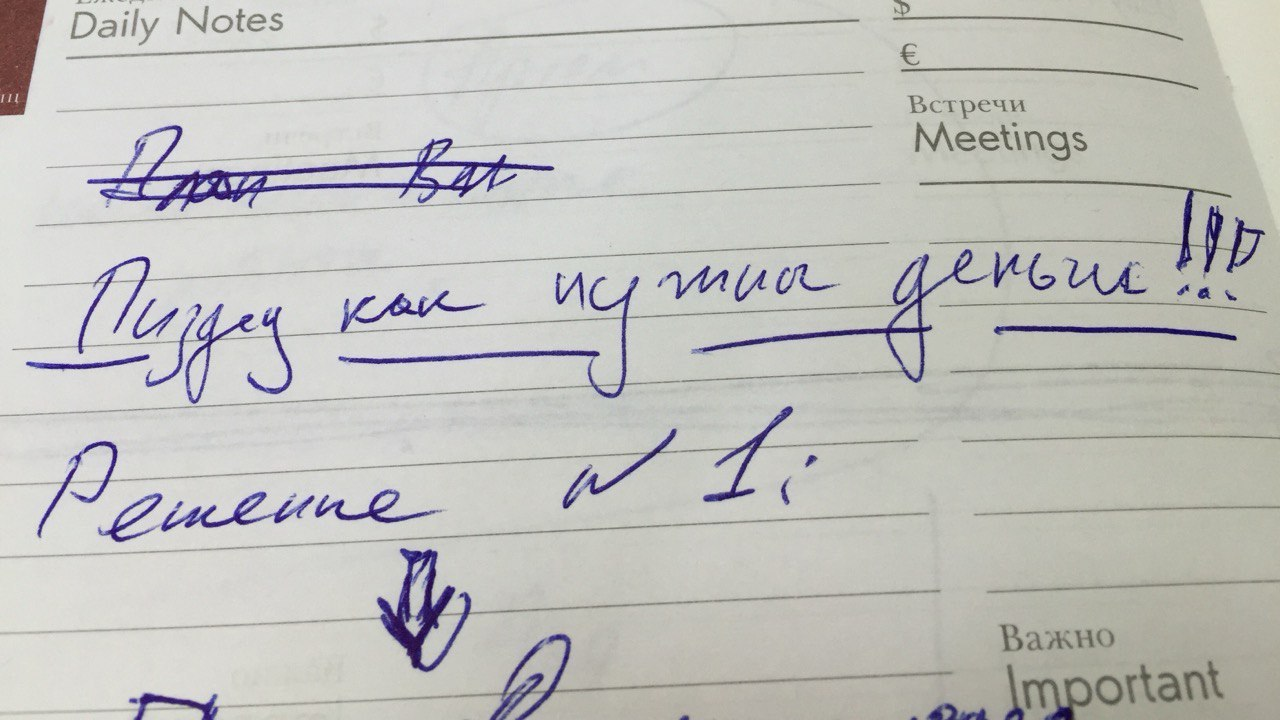 Daily Notes
$
€
Встречи
Meetings
Пиздец как нужны деньги!!!
Решение № 1:
Важно
Important